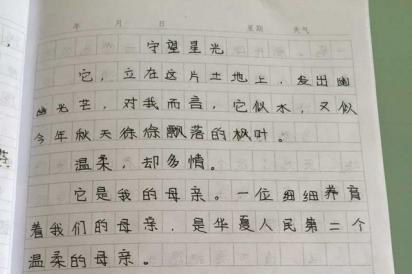 年 月 日 星期 天气
守望星光
它，立在这片土地上，发出幽
幽光芒，对我而言，它似水，又似
今年秋天徐徐飘落的枫叶。
温柔，却多情。
它是我的母亲。一位细细养育
着我们的母亲，是华夏人民第二个
温柔的母亲。